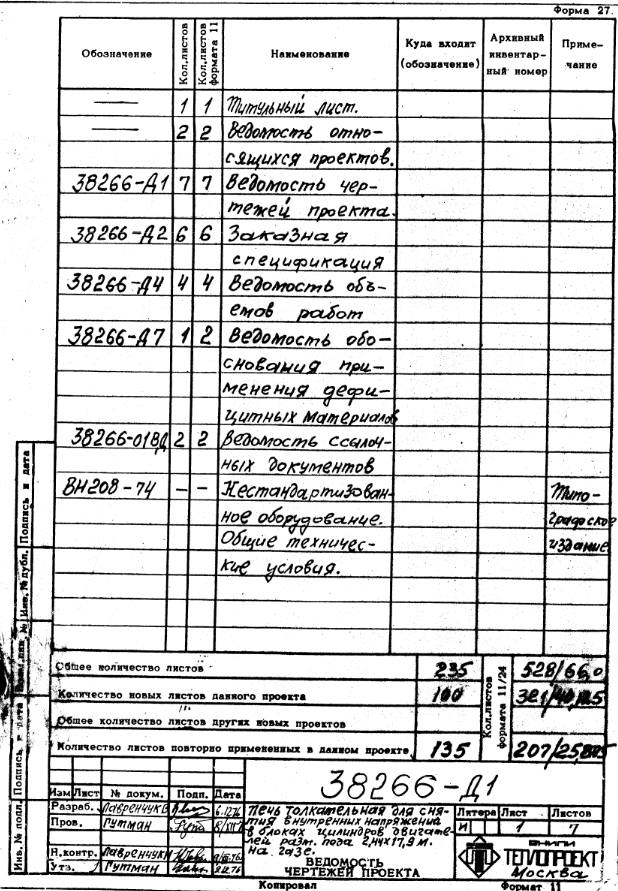 Форма 27.
Обозначение Кол.листов Кол.листов формата 11 Наименование Куда входит (обозначение) Архивный инвентар-ный номер Приме-чание
— 1 1 Титульный лист.
— 2 2 Ведомость отно-
сящихся проектов.
38266-Д1 7 7 Ведомость чер-
тежей проекта.
38266-Д2 6 6 Заказная
спецификация
38266-Д4 4 4 Ведомость объ-
емов работ
38266-Д7 1 2 Ведомость обо-
снования при-
менения дефи-
цитных материалов
38266-01ВД 2 2 Ведомость ссылоч-
ных документов
ВН208-74 — — Нестандартизован- Типо-
ное оборудование. графское
Общие техничес- издание
кие условия.
Общее количество листов 235 Кол.листов формата 11/24 528/66,0
Количество новых листов данного проекта 100 321/40,125
Общее количество листов других новых проектов
Количество листов повторно примененных в данном проекте 135 207/25,875
38266-Д1
Изм Лист № докум. Подп. Дата
Разраб. Лавренчук 6.12.76
Пров. Гутман
Н.контр. Лавренчук
Утв. Гутман
Печь толкательная для сня-
тия внутренних напряжений
в блоках цилиндров двигате-
лей разм. пода 2,44х17,9 м.
На газе.
ВЕДОМОСТЬ
ЧЕРТЕЖЕЙ ПРОЕКТА
Литера Лист Листов
И 1 7
ВНИПИ
ТЕПЛОПРОЕКТ
Москва
Копировал Формат 11
Инв. № подл. Подпись и дата Взам.инв.№ Инв.№ дубл. Подпись и дата